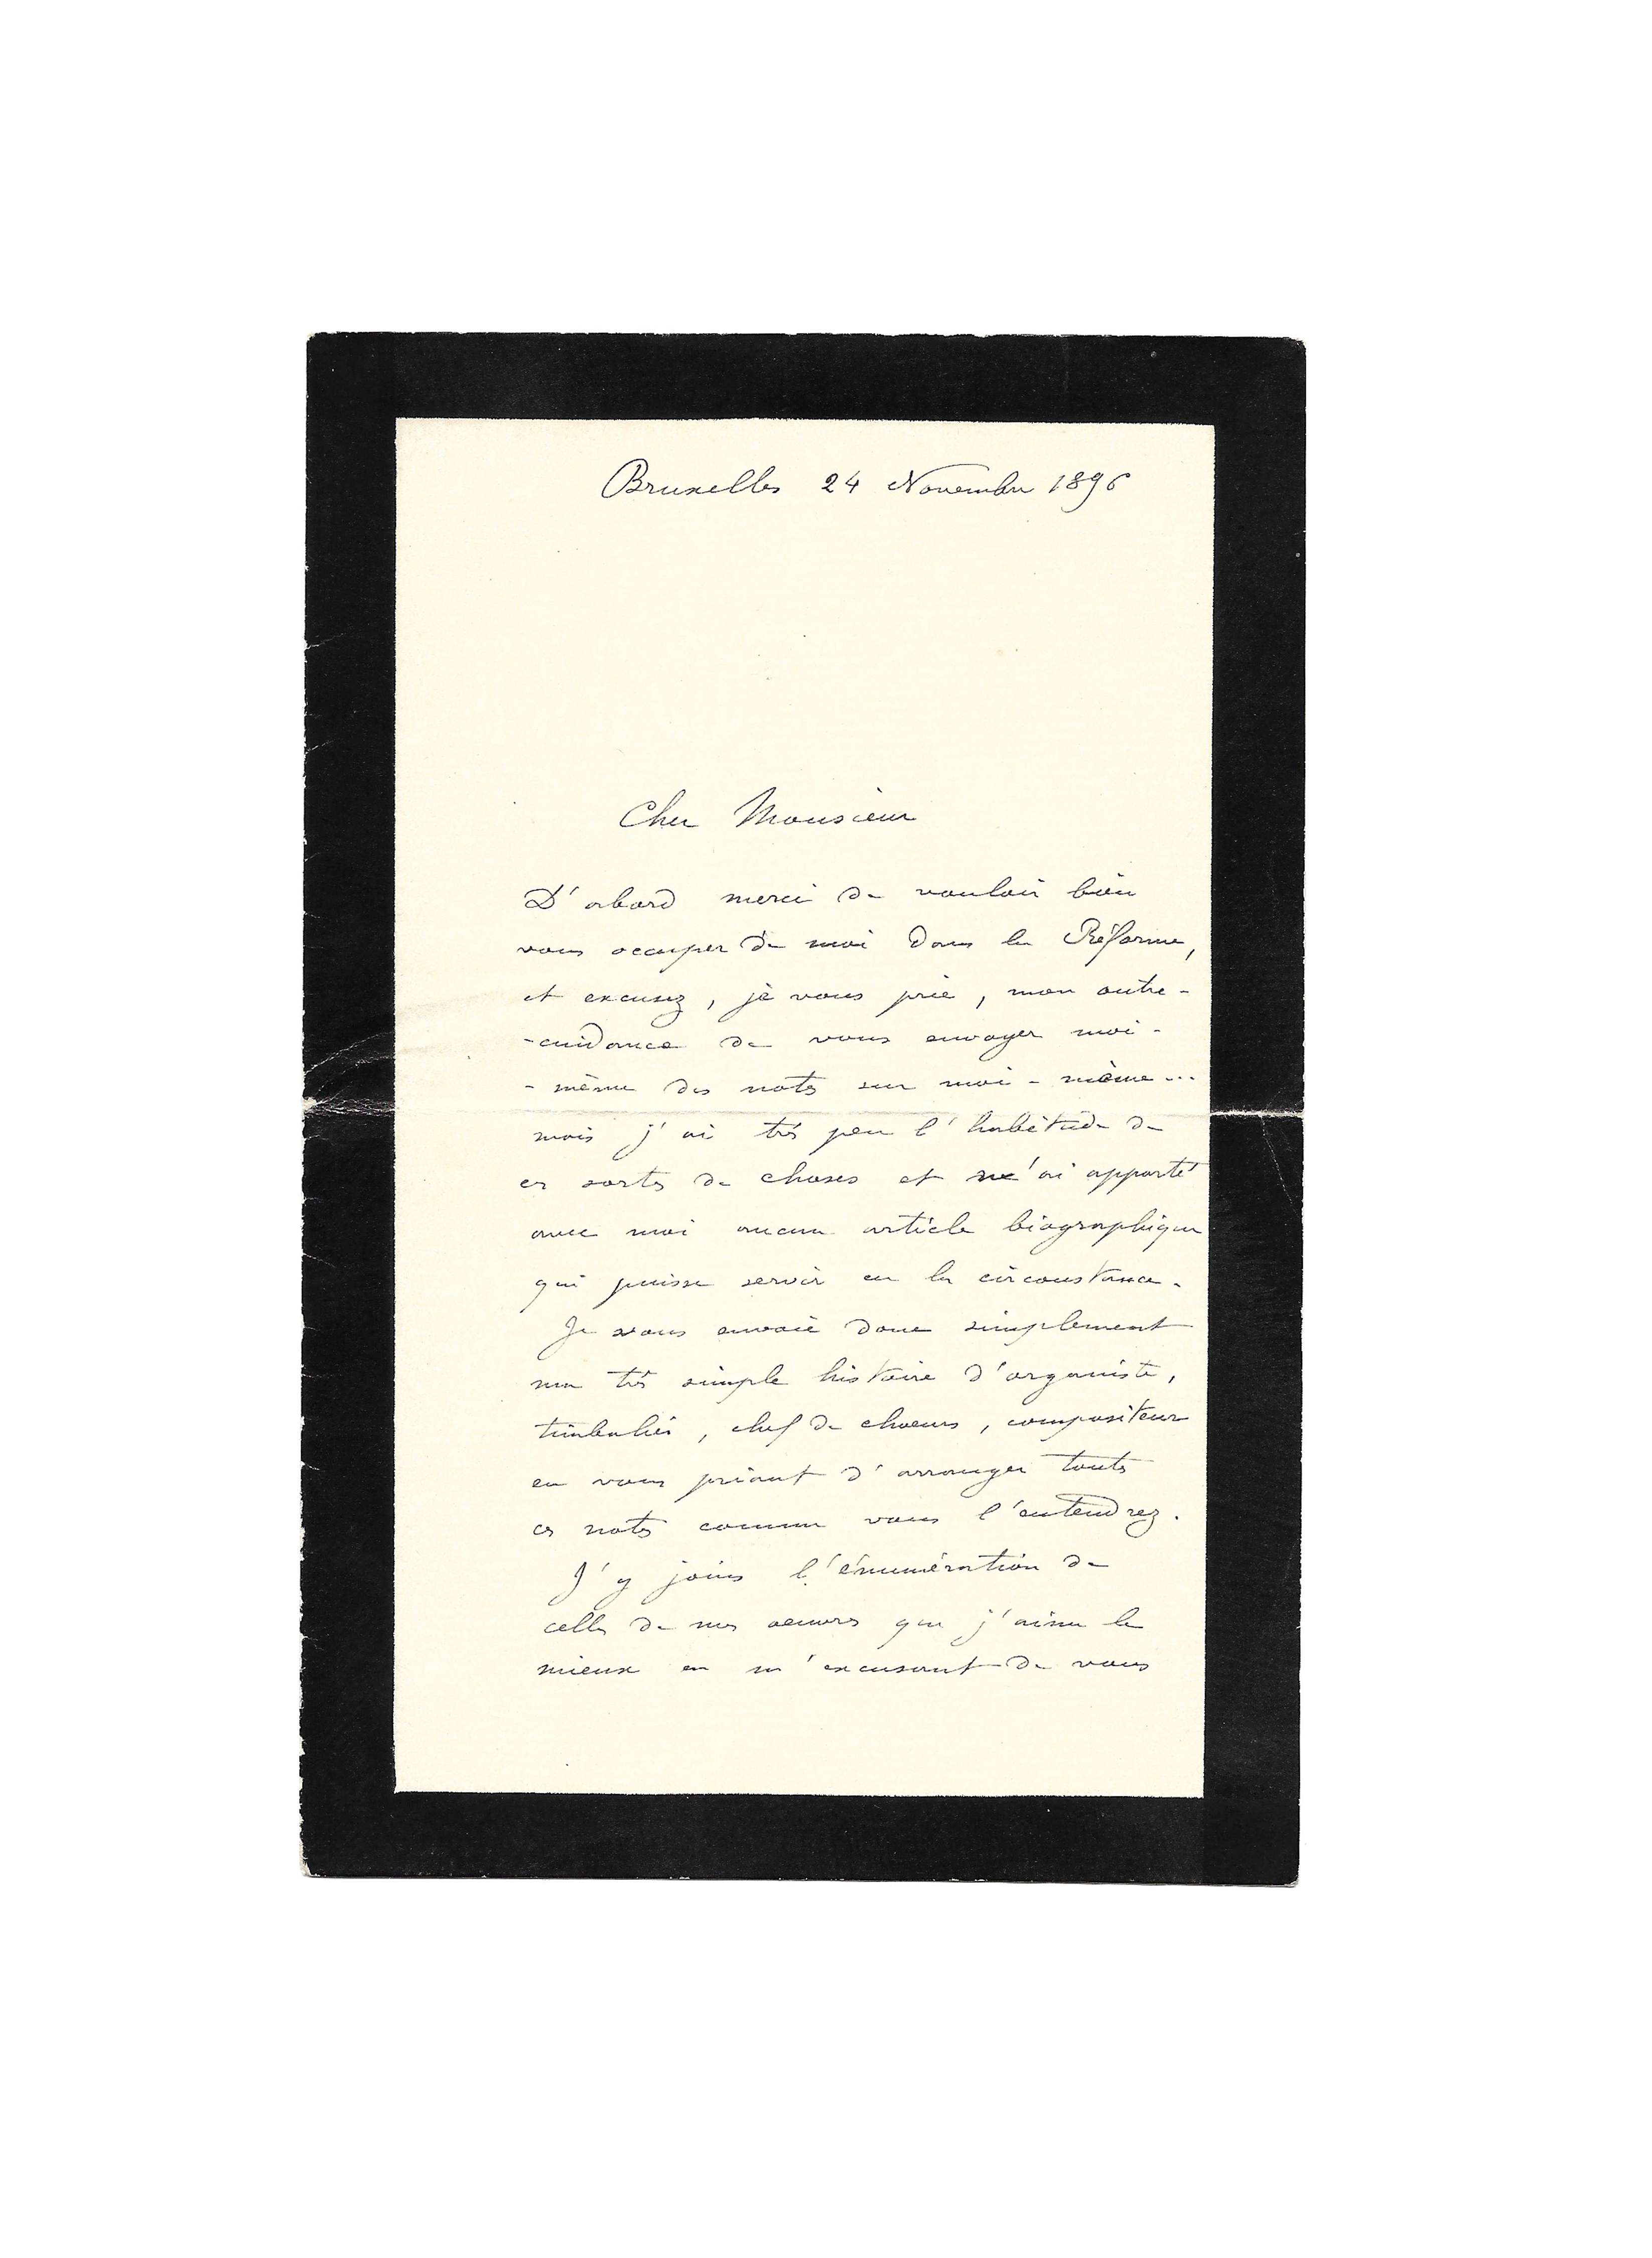 Bruxelles 24 Novembre 1896
Cher Monsieur
D'abord merci de vouloir bien
vous occuper de moi dans la Réforme,
et excusez, je vous prie, mon outre-
-cuidance de vous envoyer moi-
-même des notes sur moi-même...
mais j'ai très peu l'habitude de
ces sortes de choses et n'ai apporté
avec moi aucun article biographique
qui puisse servir en la circonstance.
Je vous envoie donc simplement
ma très simple histoire d'organiste,
timbalier, chef de chœurs, compositeur
en vous priant d'arranger toutes
ces notes comme vous l'entendrez.
J'y joins l'énumération de
celles de mes œuvres que j'aime le
mieux en m'excusant de vous